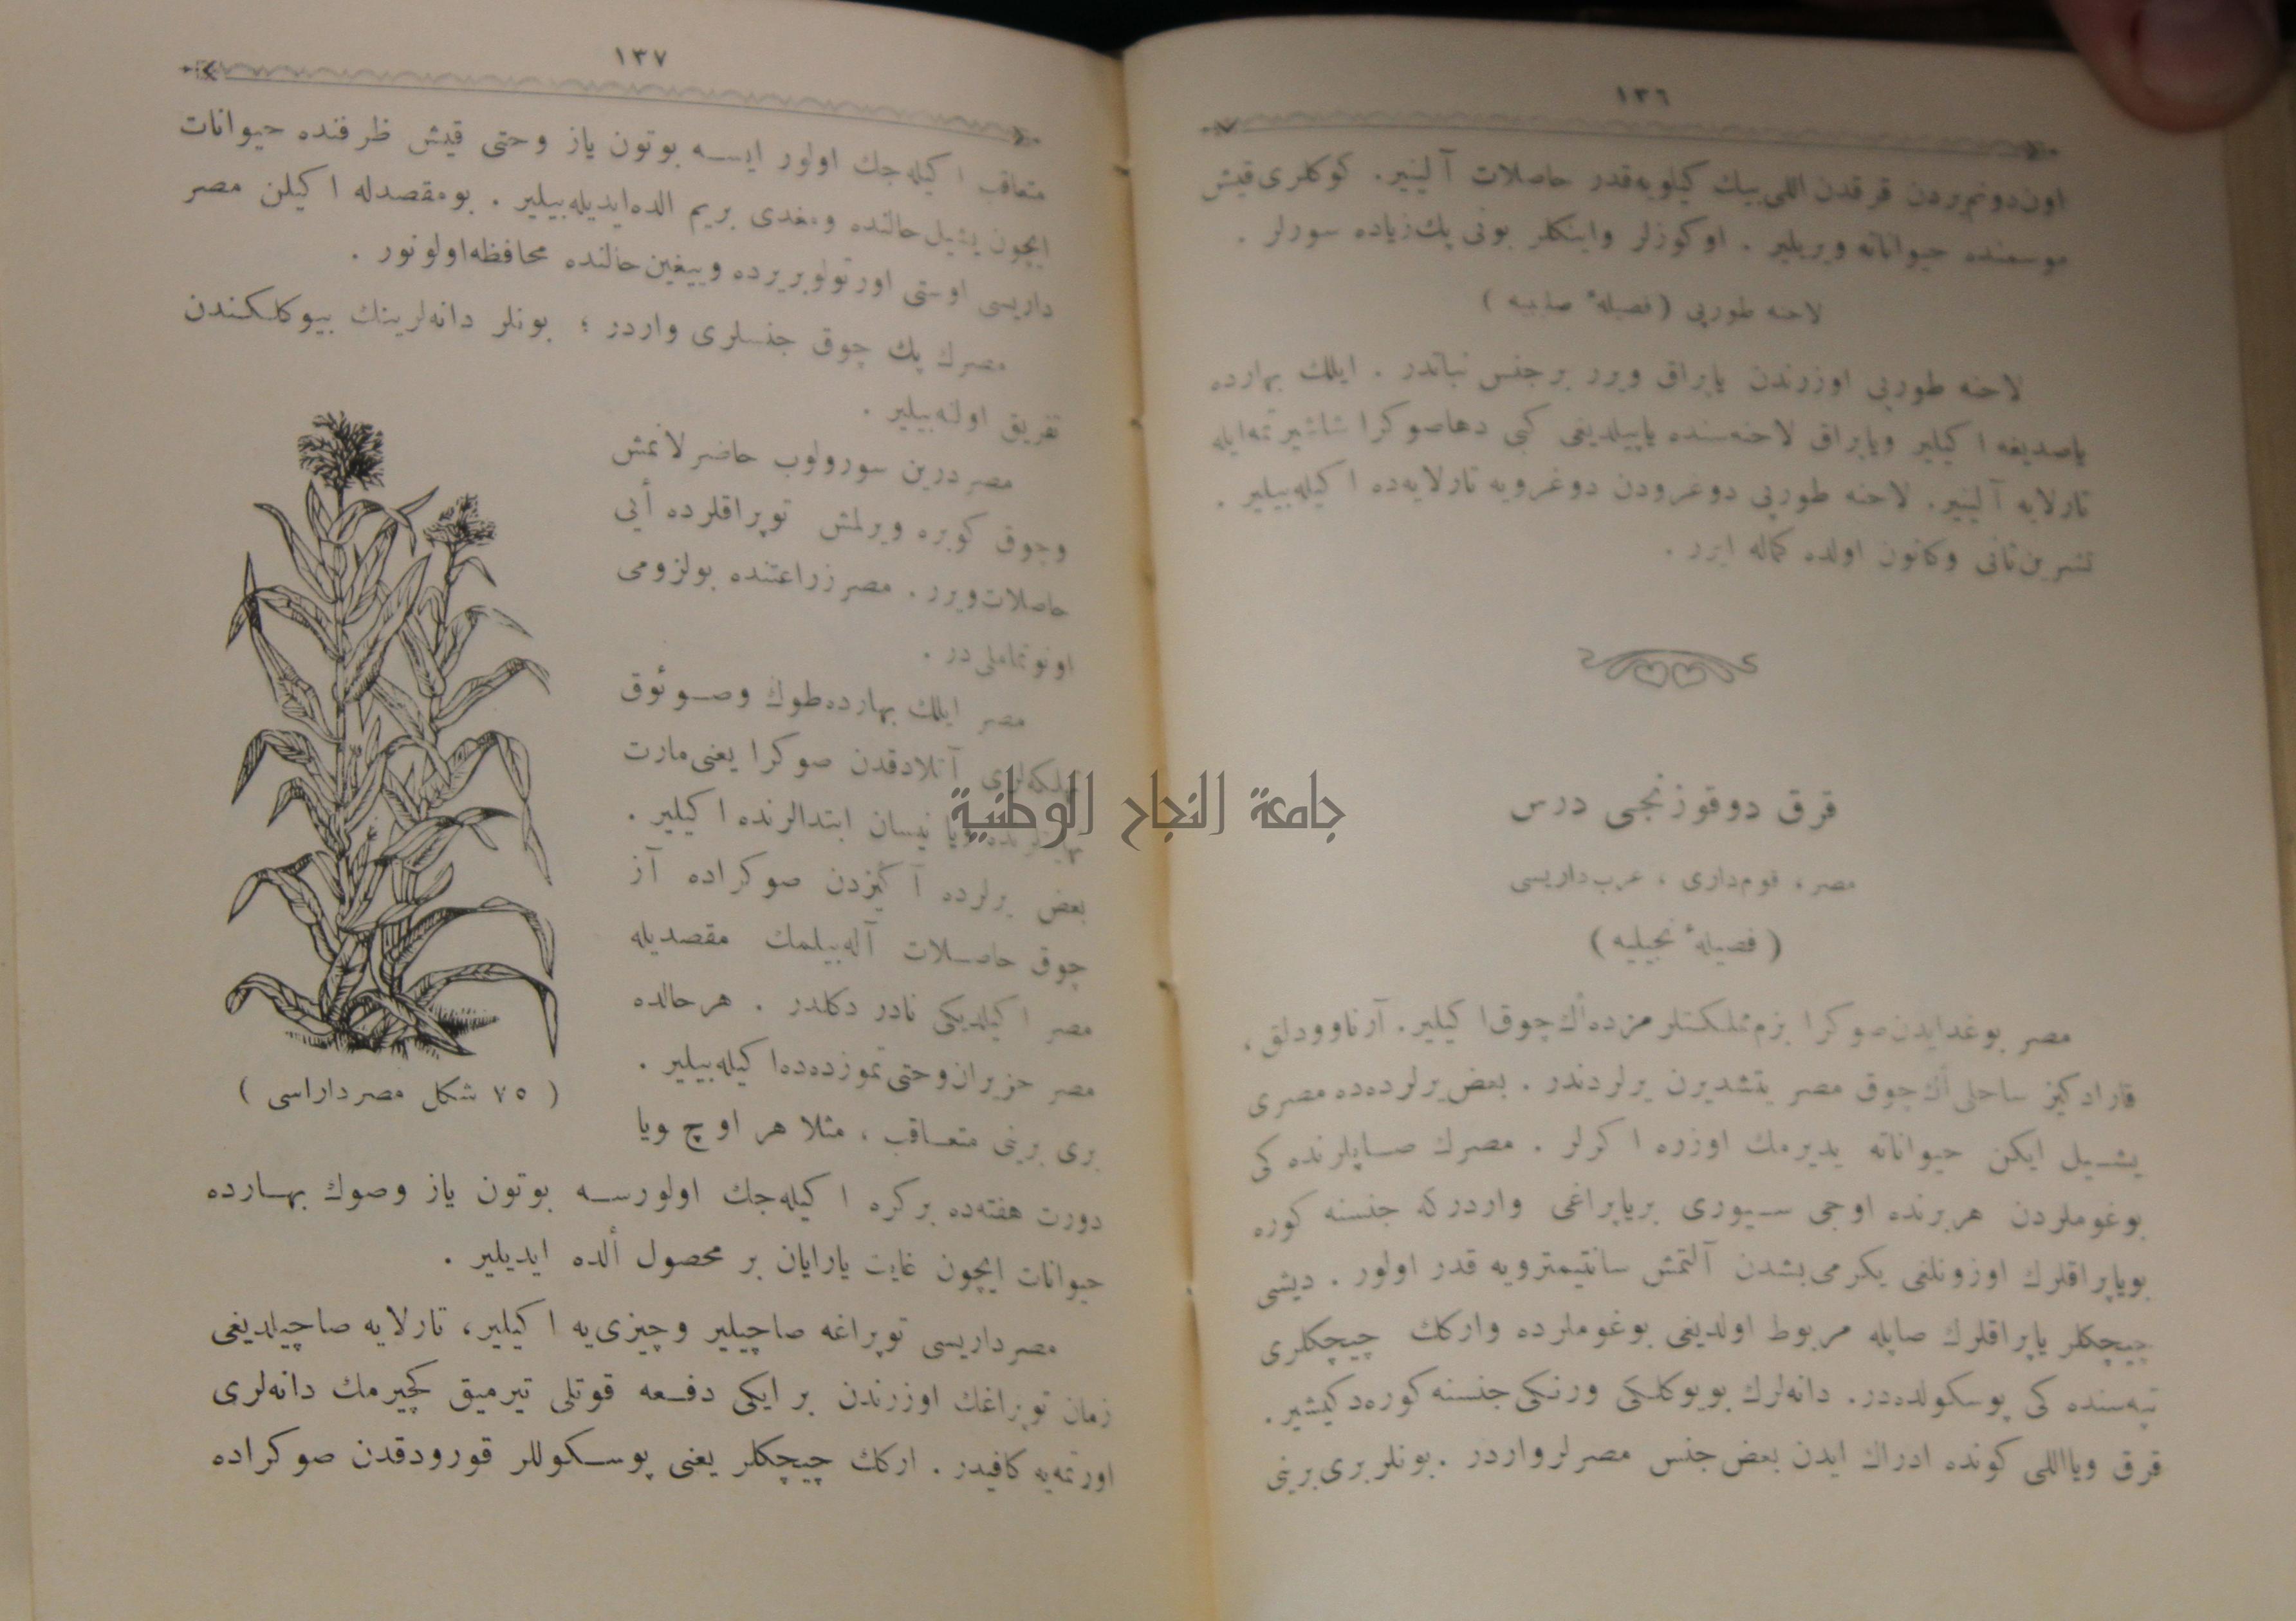 ١٣٦
اون‌دونم‌یردن قرقدن اللی بیك كیلویه‌قدر حاصلات آلینیر. كوكلری قیش
موسمنده حیواناته ویریلیر . اوكوزلر واینكلر بونی پك‌زیاده سورلر .
لاحنه طورپی ( فصیلهٔ صلیبیه )
لاحنه طورپی اوزرندن یاپراق ویرر برجنس نباتدر . ایلك بهارده
یاصدیغه ا كیلیر ویاپراق لاحنه‌سنده یاپیلدیغی كبی دهاصوكرا شاشیرتمه‌ایله
تارلایه آلینیر. لاحنه طورپی دوغرودن دوغرویه تارلایه‌ده ا كیله‌بیلیر .
تشرین‌ثانی وكانون اولده كماله ایرر .
قرق دوقوزنجی درس
مصر ، قوم‌داری ، عرب‌داریسی
( فصیلهٔ نجیلیه )
مصر بوغدایدن‌صوكرا بزم‌مملكتلرمزده‌اك‌چوق‌ا كیلیر. آرناوودلق ،
قارادكیز ساحلی اك‌چوق مصر یتشدیرن یرلردندر . بعض‌یرلرده‌ده مصری
یشیل ایكن حیواناته یدیرمك اوزره ا كرلر . مصرك صاپلرنده كی
بوغوملردن هربرنده اوجی سیوری برپاپراغی واردركه جنسنه كوره
بویاپراقلرك اوزونلغی یكرمی‌بشدن آلتمش سانتیمترویه قدر اولور . دیشی
چیچكلر یاپراقلرك صاپله مربوط اولدیغی بوغوملرده واركك چیچكلری
تپه‌سنده كی پوسكولده‌در. دانه‌لرك بویوكلكی ورنكی جنسنه كوره‌دكیشیر.
قرق ویااللی كونده ادراك ایدن بعض‌جنس مصرلر‌واردر .بونلر بری‌برینی
١٣٧
متعاقب ا كیله‌جك اولور ایسه بوتون یاز وحتی قیش ظرفنده حیوانات
ایچون یشیل‌حالنده ومغدی بریم الده‌ایدیله‌بیلیر . بومقصدله ا كیلن مصر
داریسی اوستی اورتولوبریرده وییغین‌حالنده محافظه‌اولونور .
مصرك پك چوق جنسلری واردر ؛ بونلر دانه‌لرینك بیوكلكندن
تفریق اولنه‌بیلیر .
مصردرین سورولوب حاضرلانمش
وچوق كوبره ویرلمش توپراقلرده أیی
حاصلات‌ویرر . مصرزراعتنده بولزومی
اونوتماملی‌در .
مصر ایلك بهارده‌طوك وصوئوق
تهلكه‌لری آتلادقدن صوكرا یعنی‌مارت
ویا نیسان ابتدالرنده ا كیلیر .
بعض یرلرده آ كیزدن صوكراده آز
چوق حاصلات آله‌بیلمك مقصدیله
مصر ا كیلدیكی نادر دكلدر . هرحالده
مصر حزیران‌وحتی تموزده‌ده‌ا كیله‌بیلیر .
بری برینی متعاقب ، مثلا هر اوچ ویا
( ٧٥ شكل مصرداراسی )
دورت هفته‌ده بركره ا كیله‌جك اولورسه بوتون یاز وصوك بهارده
حیوانات ایچون غایت یارایان بر محصول ألده ایدیلیر .
مصرداریسی توپراغه صاچیلیر وچیزی‌یه ا كیلیر، تارلایه صاچیلدیغی
زمان توپراغك اوزرندن بر ایكی دفعه قوتلی تیرمیق كچیرمك دانه‌لری
اورتمه‌یه كافیدر . اركك چیچكلر یعنی پوسكوللر قورودقدن صوكراده
جامعة النجاح الوطنية